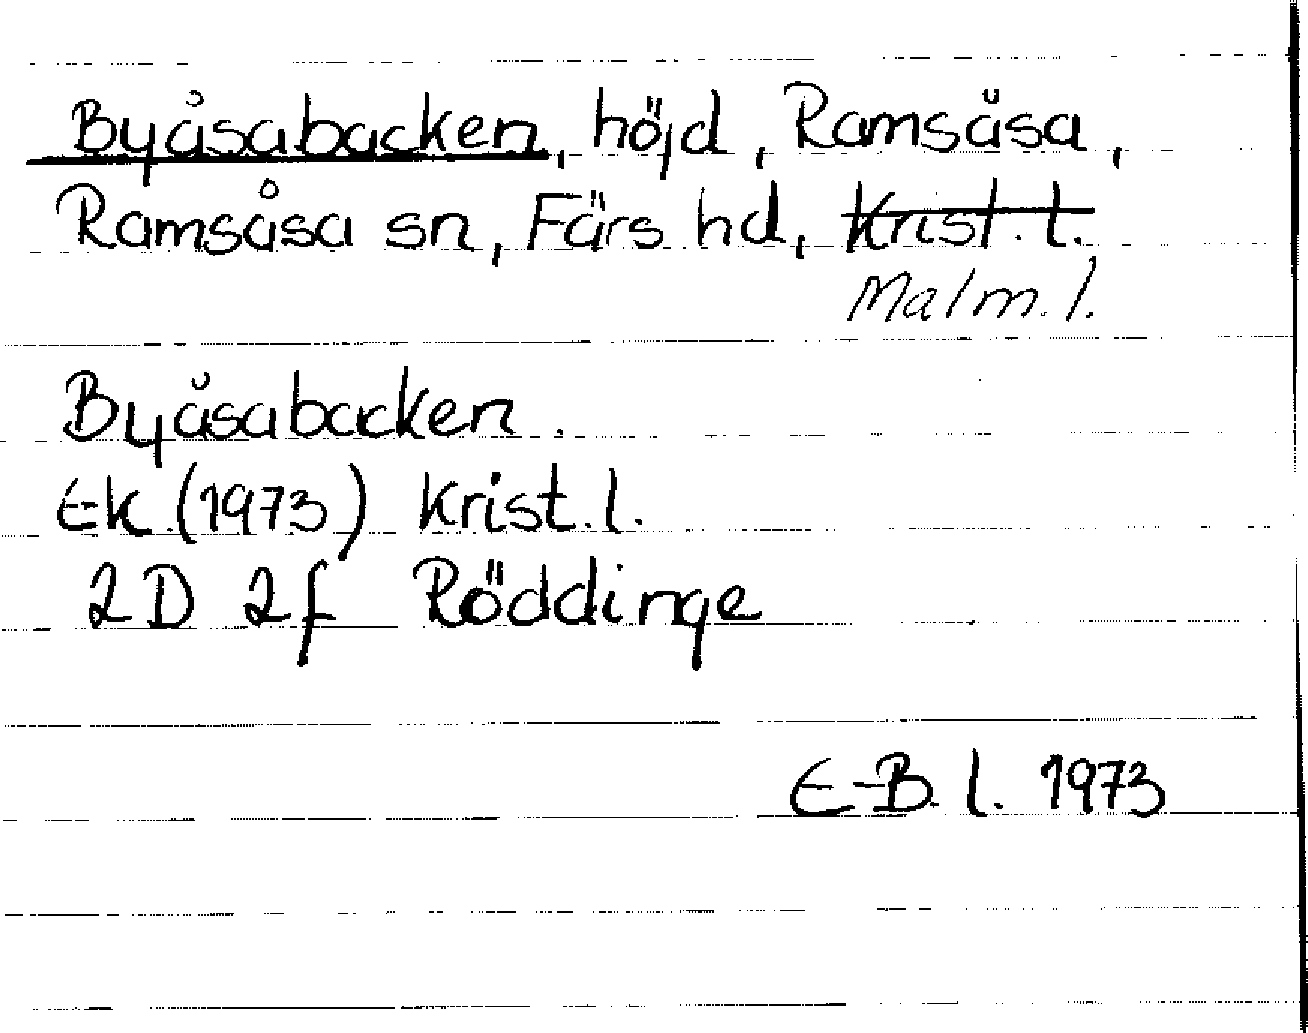 Byåsabacken, höjd, Ramsåsa,
Ramsåsa sn, Färs hd, Krist. l.
Malm. l.
Byåsabacken.
Ek (1973) Krist. l.
2D 2f Röddinge
E-B l. 1973